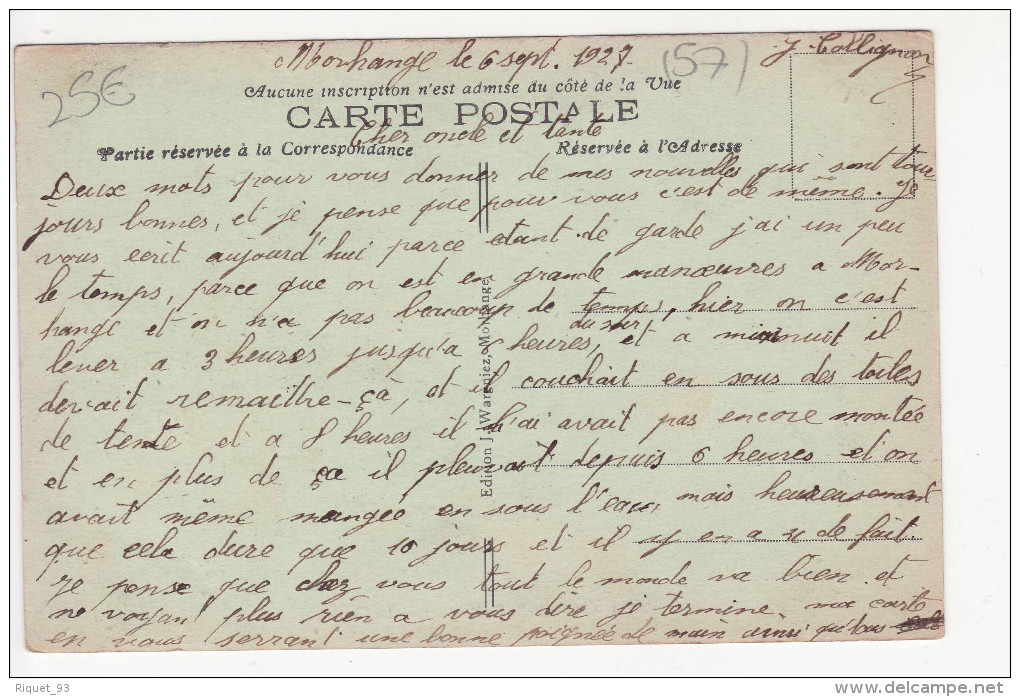 Morhange le 6 sept. 1927 (57) J. Collignon
25€
Aucune inscription n'est admise du côté de la Vue
CARTE POSTALE
Cher oncle et tante
Partie réservée à la Correspondance Réservée à l'Adresse
Deux mots pour vous donner de mes nouvelles qui sont tou-
jours bonnes, et je pense que pour vous c'est de même. Je
vous ecrit aujourd'hui parce etant de garde j'ai un peu
le temps, parce que on est en grande manœuvres a Mor-
hange et on n'a pas beaucoup de temps, hier on c'est
lever a 3 heures jusqu'a 6 heures, et a minuit il
du soir
devait remaittre-ça, et il couchait en sous des toiles
de tente et a 8 heures il n'ai avait pas encore montée
et en plus de ça il pleuvait depuis 6 heures et on
avait même mangée en sous l'eau, mais heureusement
que cela dure que 10 jours et il y en a de fait.
Je pense que chez vous tout le monde va bien et
ne voyant plus rien a vous dire je termine ma carte
en vous serrant une bonne poignée de main ainsi qu'tous
Edition J. Wargniez, Morhange
Riquet_93
www.delcampe.net